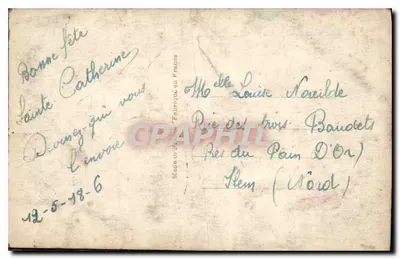 Bonne fête
Sainte Catherine
Devinez qui vous
l'envoie
12-5-18-6
Made in France Fabriqué en France
Melle Louise Noxilde
Rue des trois Baudets
(Près du Pain D'Or)
Hem (Nord)
CPAPHIL